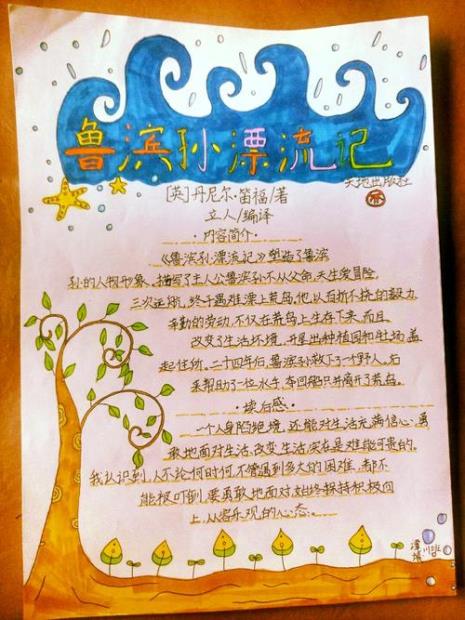 鲁滨孙漂流记
天地出版社
[英]丹尼尔·笛福/著
立人/编译
·内容简介·
《鲁滨孙漂流记》塑造了鲁滨
孙的人物形象、描写了主人公鲁滨孙不从父命,天生爱冒险,
三次远航,终于遇难漂上荒岛,他以百折不挠的毅力,
辛勤的劳动,不仅在荒岛上生存下来,而且
改变了生活环境,开垦出种植园和牧场,盖
起住所。二十四年后,鲁滨孙救下了一个野人。后
来帮助了一位水手,夺回船只并离开了荒岛。
·读后感·
一个人身陷绝境,还能对生活充满信心,勇
敢地面对生活,改变生活,实在是难能可贵的。
我认识到,人不论何时何,不管遇到多大的困难,都不
能被吓倒,要勇敢地面对,始终保持积极向
上,从容乐观的心态。